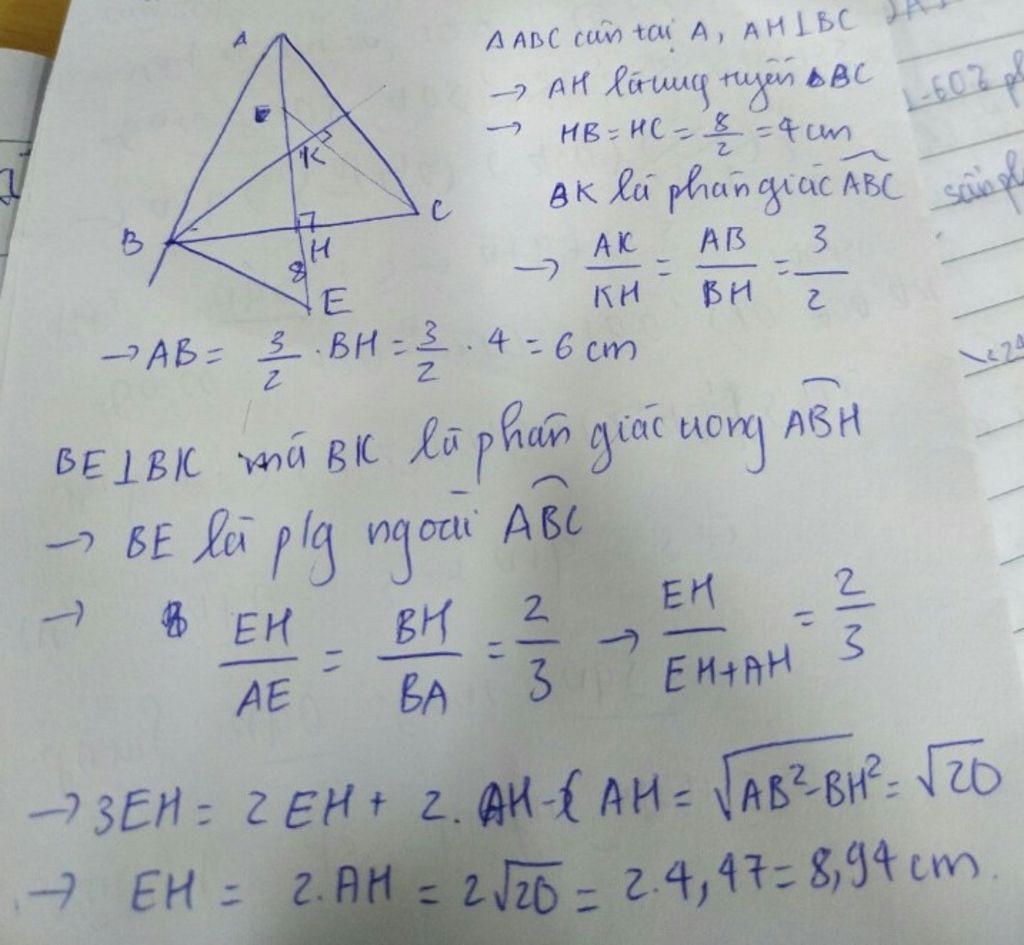 A
K
B
H
C
8
E
ΔABC cân tại A, AH⊥BC
→ AH là trung tuyến ΔBC
→ HB = HC = 8/2 = 4 cm
BK là phân giác ABC
→ AK/KH = AB/BH = 3/2
→ AB = 3/2 . BH = 3/2 . 4 = 6 cm
BE⊥BK mà BK là phân giác trong ABH
→ BE là p/g ngoài ABC
→ EH/AE = BH/BA = 2/3 → EH/EH+AH = 2/3
→ 3EH = 2EH + 2.AH AH = √AB²-BH² = √20
→ EH = 2.AH = 2√20 = 2.4,47 = 8,94 cm.